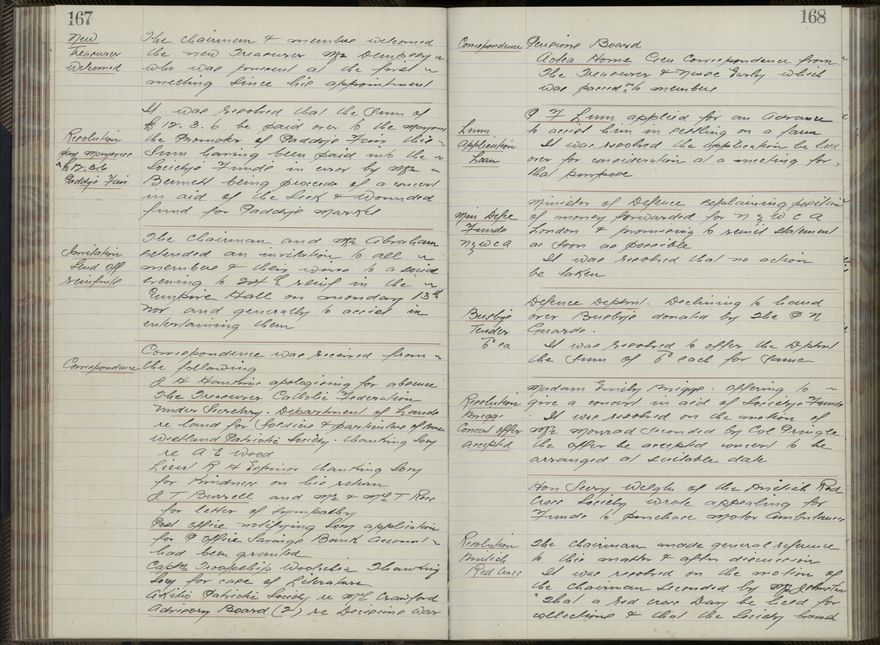 167
New
Treasurer
welcomed
The Chairman & members welcomed
the new Treasurer Mr Dempsey
who was present at the first
meeting since his appointment
Resolution
pay Mayoress
£17.3.6
Paddys Fair
It was resolved that the Sum of
£17.3.6 be paid over to the Mayoress
the Promoter of Paddys Fair this
Sum having been paid into the
Societys Funds in error by Mr
Bennett being proceeds of a concert
in aid of the Sick & Wounded
fund for Paddys Market
Invitation
Send off
reinfmts
The Chairman and Mr Abraham
extended an invitation to all
members & their wives to a social
evening to 24th E reinf in the
Empire Hall on Monday 13th
Nov and generally to assist in
entertaining them
Correspondence
Correspondence was received from
the following
J H Hawkins apologising for absence
The Treasurer Catholic Federation
Under Secretary. Department of Lands
re land for Soldiers & particulars of
Wellland Patriotic Society. thanking Socy
re A E Wood
Lieut R H Espiner thanking Socy
for kindness on his return
J T Burrell and Mr & Mrs T Rose
for letter of Sympathy
Post office notifying Socy application
for P office Savings Bank account
had been granted
Capt Troopship Woolshea Thanking
Socy for case of Literature
Akitio Patriotic Society re Mrs Crawford
Advisory Board (2) re Decisions War
168
Correspondence
Pensions Board
Aotea Home Cairo Correspondence from
The Treasurer & Nurse Early which
was passed to members
Lunn
Application
Loan
P F Lunn applied for an Advance
to assist him in settling on a farm
It was resolved the application be held
over for consideration at a meeting for
that purpose
Min Defce
Funds
N Z W C A
Minister of Defence explaining position
of money forwarded for N Z W C A
London & promising to send statement
as soon as possible
It was resolved that no action
be taken
Busbys
Tender
6d ea
Defence Deptmt. Declining to hand
over Busbys donated by the P N
Guards.
It was resolved to offer the Deptmt
the Sum of 6d each for Same
Resolution
Briggs
Concert offer
accepted
Madam Emily Briggs offering to
give a concert in aid of Societys Funds
It was resolved on the motion of
Mr Monrad Seconded by Col Pringle
the offer be accepted concert to be
arranged at suitable date
Hon Secry Welgtn of the British Red
Cross Society wrote appealing for
Funds to purchase Motor Ambulances
Resolution
British
Red Cross
The Chairman made general reference
to this matter & after discussion
It was resolved on the motion of
the Chairman Seconded by Mr Johnston
"That a Red Cross Day be held for
collections & that the Society hand